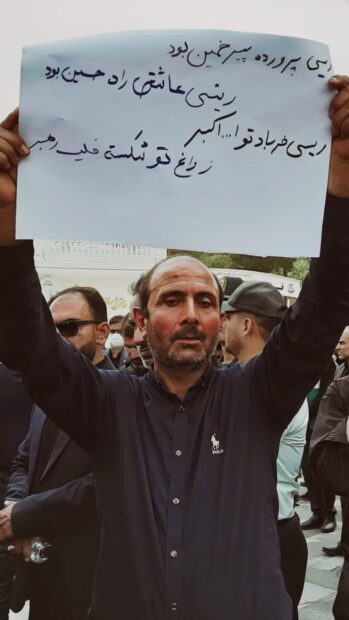 رئیسی پرورده پیر خمین بود
رئیسی عاشق راه حسین بود
رئیسی فریاد تو ا... اکبر
ز داغ تو شکسته قلب رهبر
POLO